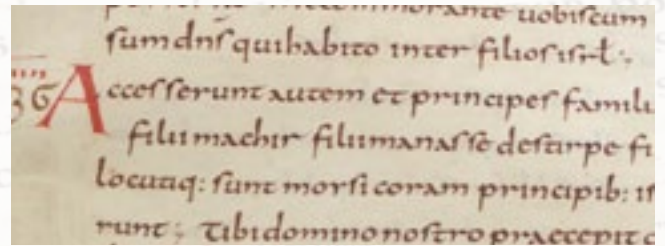 me commorante uobiscum
sum dnſ qui habito inter filioſ iſrł:,
36 Acceſſerunt autem et principeſ famili
filii machir filii manaſſe de ſtirpe fi
Locutiq: ſunt morſi coram principib: iſ
runt; Tibi domino noſtro praecepit